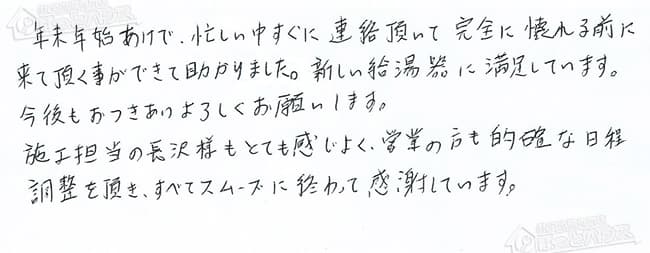 年末年始あけで、忙しい中すぐに連絡頂いて完全に壊れる前に
来て頂く事ができて助かりました。新しい給湯器に満足しています。
今後もおつきあいよろしくお願いします。
施工担当の長沢様もとても感じよく、営業の方も的確な日程
調整を頂き、すべてスムーズに終わって感謝しています。